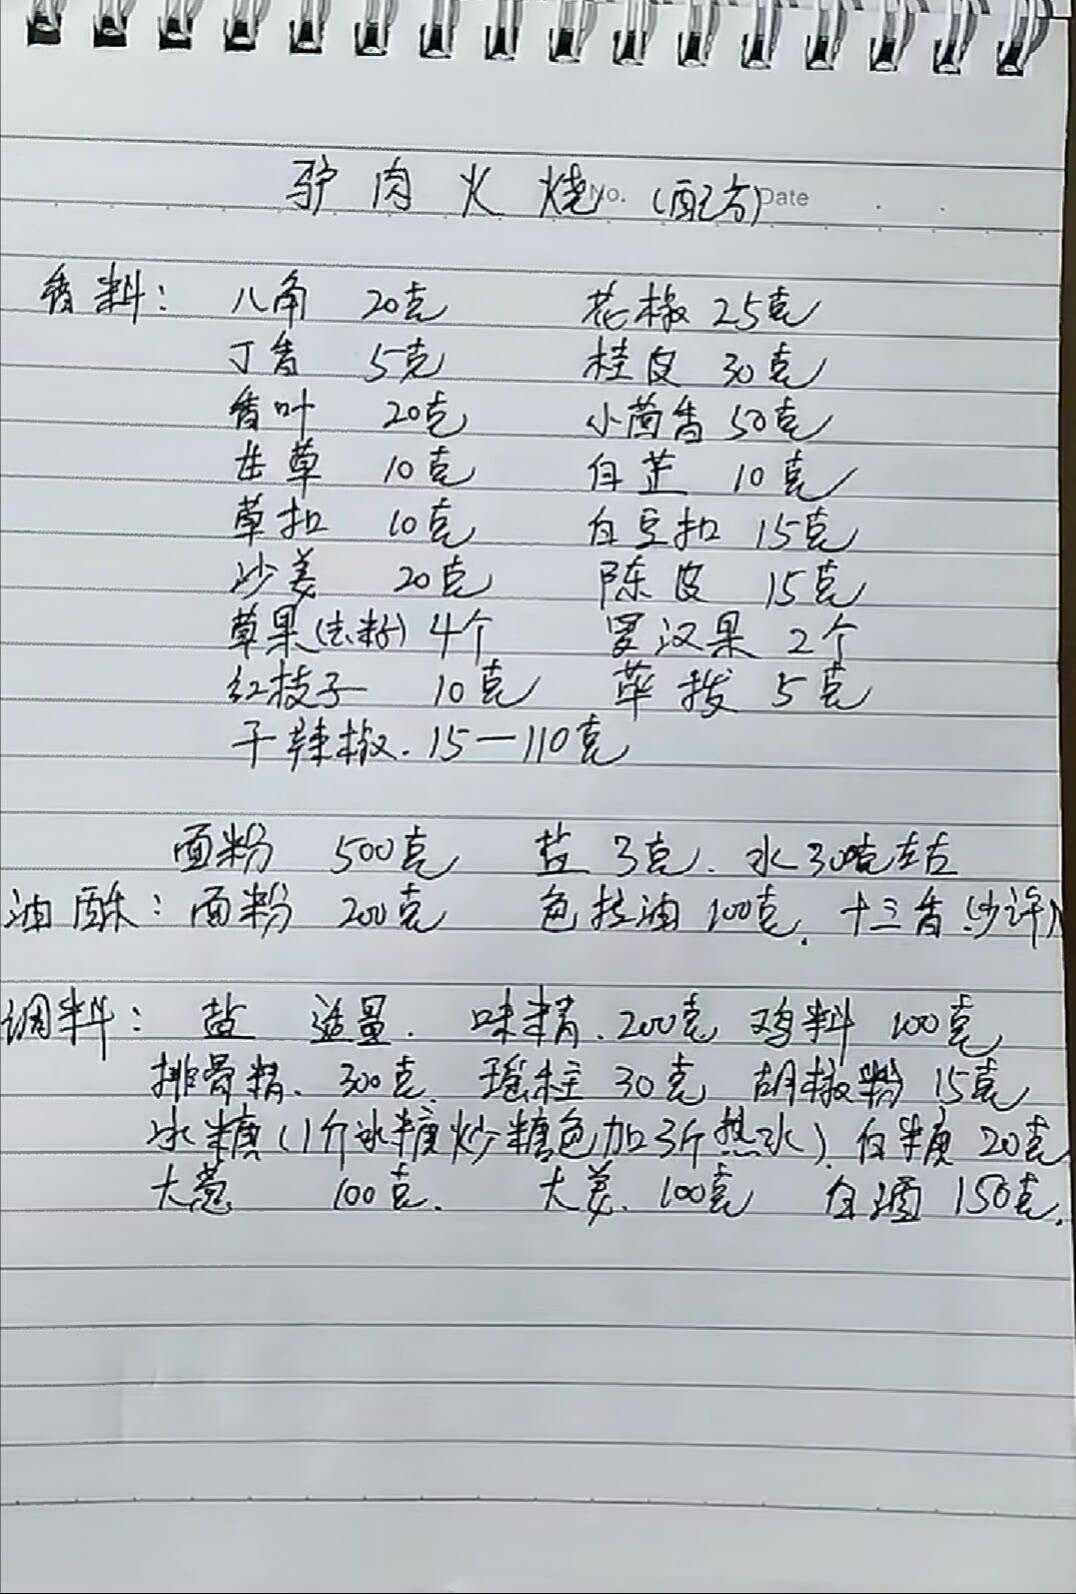 驴肉火烧 No. (配方) Date
香料: 八角 20克 花椒 25克
丁香 5克 桂皮 30克
香叶 20克 小茴香 50克
甘草 10克 白芷 10克
草扣 10克 白豆扣 15克
沙姜 20克 陈皮 15克
草果(去籽) 4个 罗汉果 2个
红枝子 10克 荜拨 5克
干辣椒. 15—110克
面粉 500克 盐 3克. 水300克左右
油酥: 面粉 200克 色拉油 100克. 十三香(少许)
调料: 盐 适量. 味精. 200克 鸡料 100克
排骨精. 300克. 瑶柱 30克 胡椒粉 15克
冰糖(1斤冰糖炒糖色加3斤热水). 白糖 20克
大葱 100克. 大姜. 100克 白酒 150克.